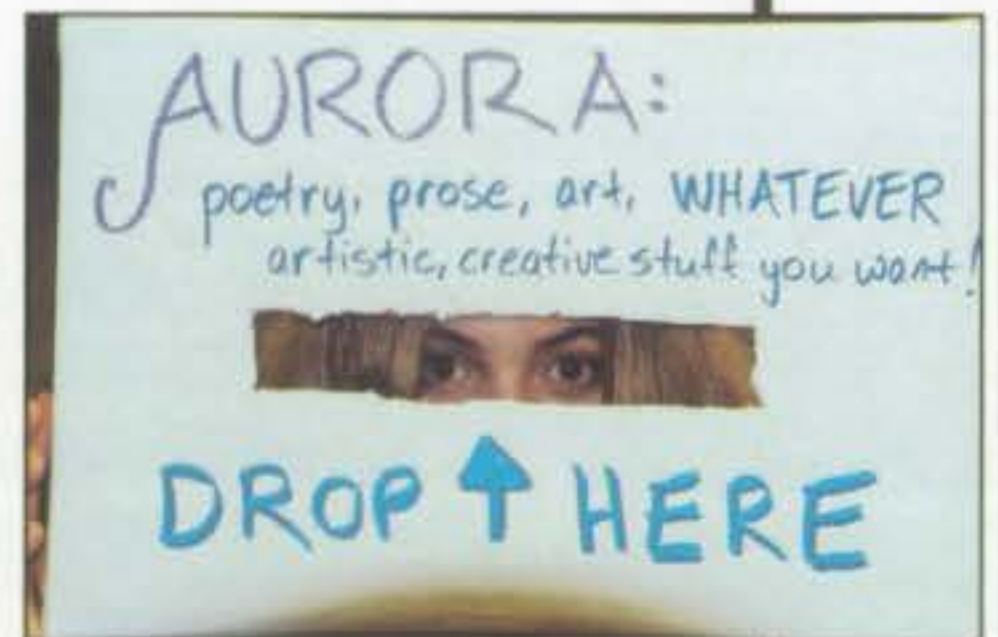 AURORA:
poetry, prose, art, WHATEVER
artistic, creative stuff you want!
DROP ↑ HERE